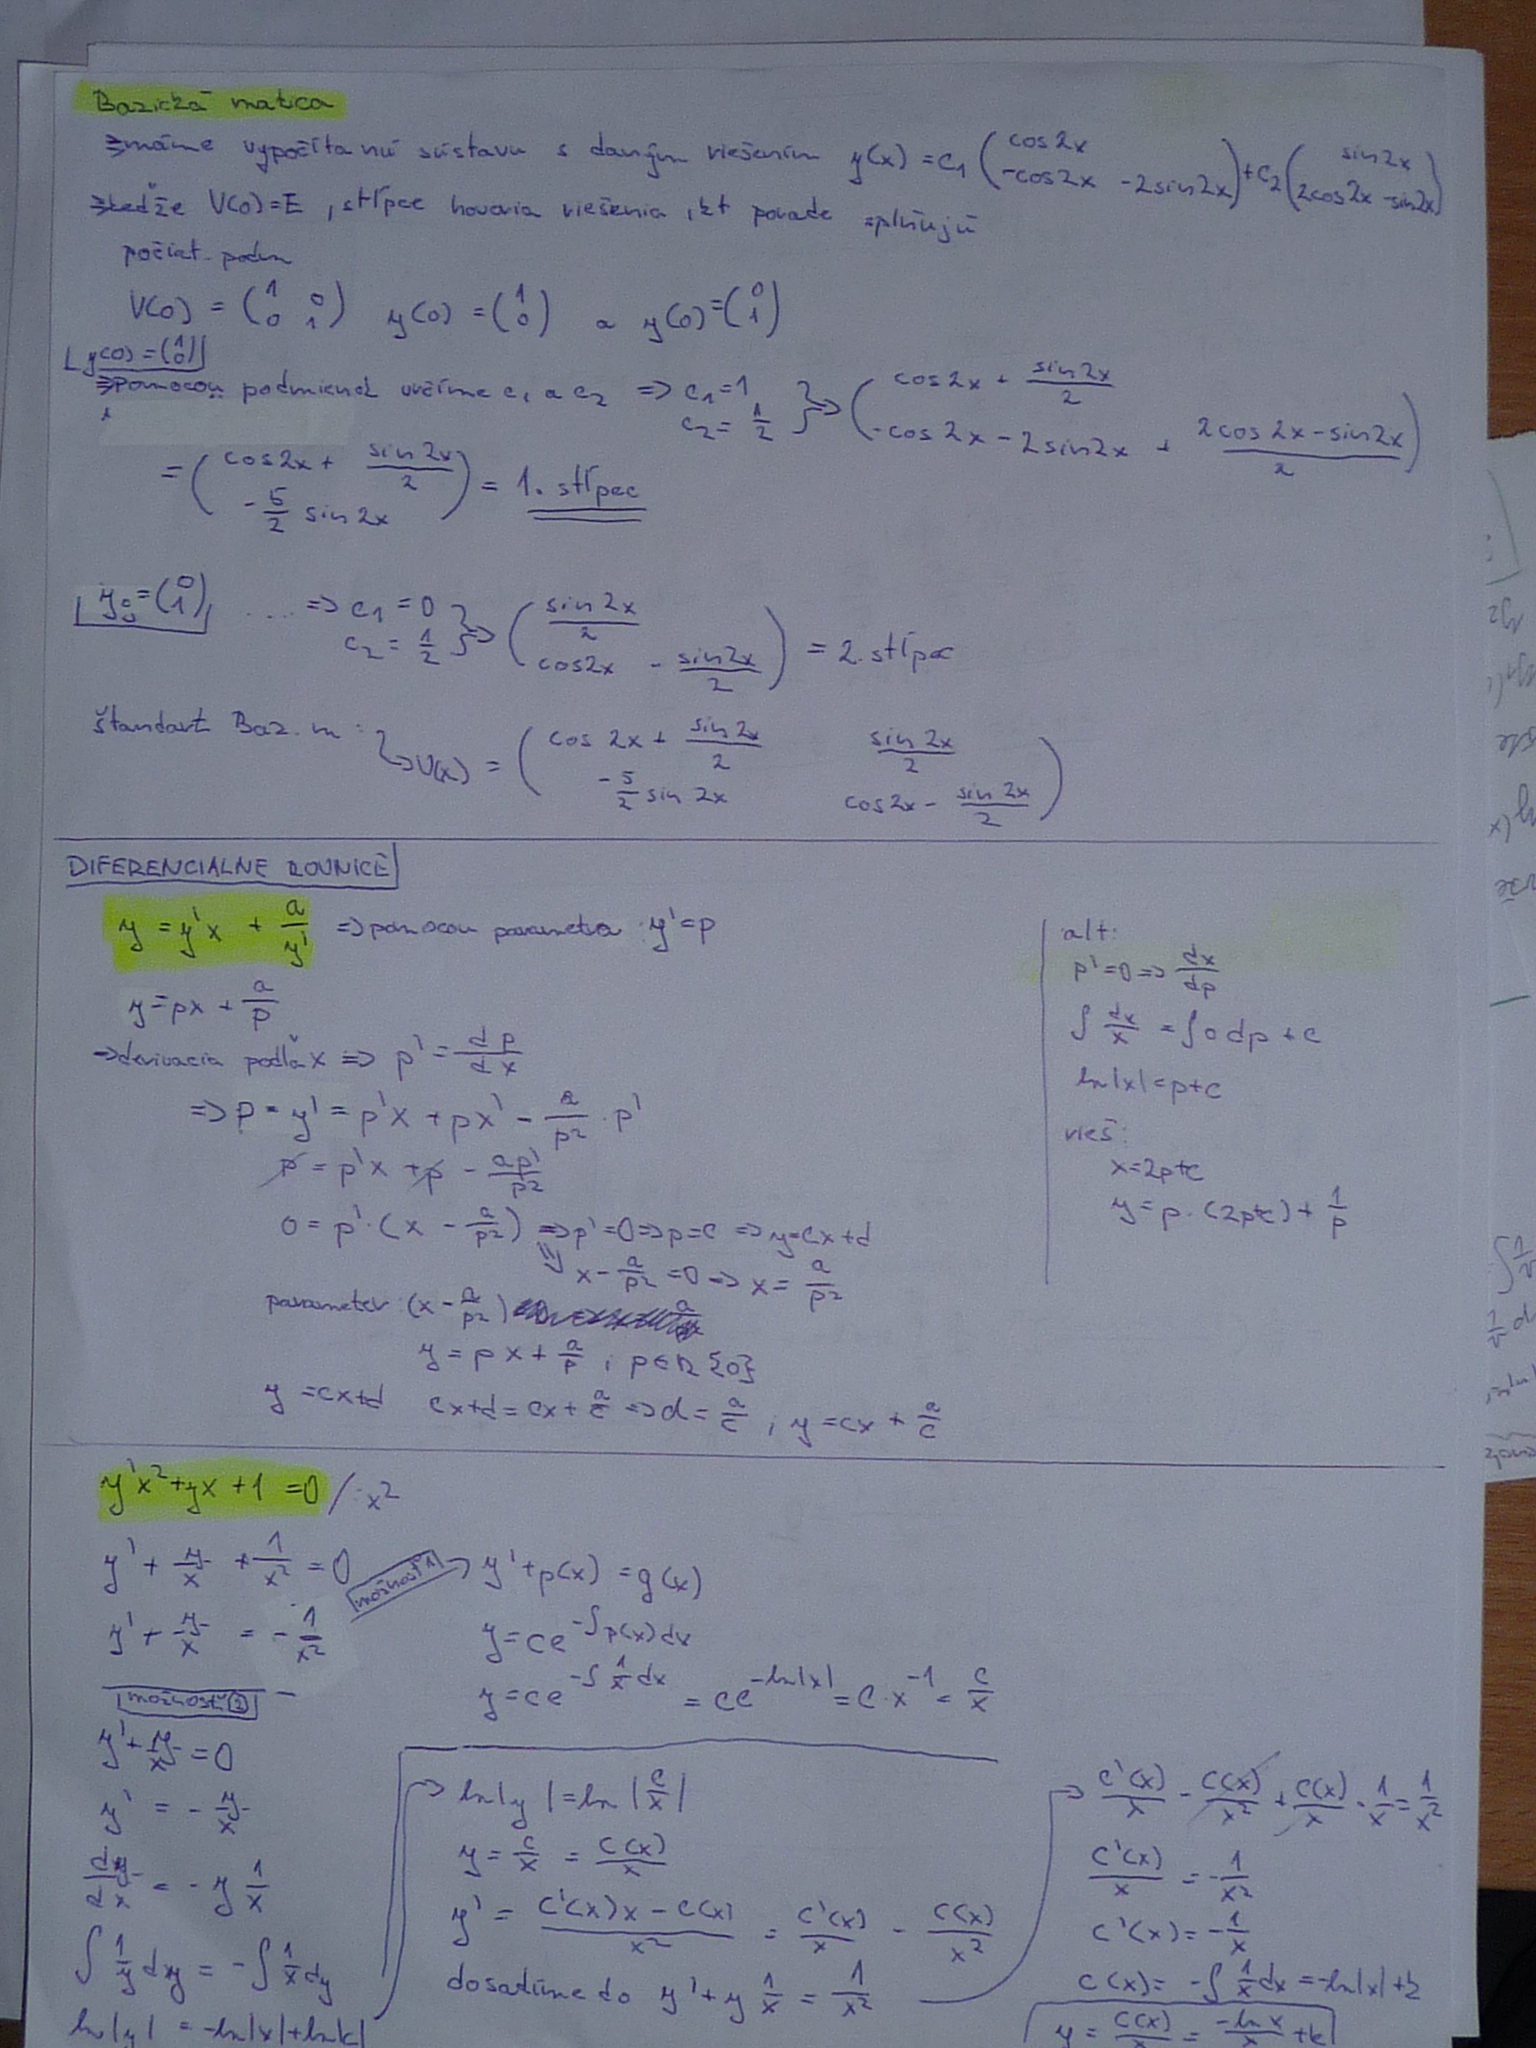 Bazická matica
⇒ máme vypočítanú sústavu s daným riešením y(x) = c₁ (cos2x; -cos2x - 2sin2x) + c₂ (sin2x; 2cos2x - sin2x)
⇒ keďže V(0)=E, stĺpce hovoria riešenia, kt
počiat. podm
V(0) = (1 0; 0 1) y(0) = (1; 0) a y(0) = (0; 1)
y(0) = (1; 0)
⇒ pomocou podmienok určíme c₁ a c₂ ⇒ c₁=1 c₂=1/2 } ⇒ (cos2x + sin2x/2; -cos2x - 2sin2x + (2cos2x - sin2x)/2)
= (cos2x + sin2x/2; -5/2 sin2x) = 1. stĺpec
y₀ = (0; 1) .... ⇒ c₁ = 0 c₂ = 1/2 } ⇒ (sin2x/2; cos2x - sin2x/2) = 2. stĺpec
štandart Baz. m: ↳ U(x) = (cos2x + sin2x/2 sin2x/2; -5/2 sin2x cos2x - sin2x/2)
DIFERENCIALNE ROVNICE
y = y'x + a/y' ⇒ pomocou parametra y'=p
y = px + a/p
⇒ derivacia podľa x ⇒ p' = dp/dx
⇒ p = y' = p'x + px' - a/p² · p'
p = p'x + p - ap'/p²
0 = p'·(x - a/p²) ⇒ p'=0 ⇒ p=c ⇒ y=cx+d
⇓ x - a/p² = 0 ⇒ x = a/p²
parameter: (x - a/p²)
y = px + a/p ; p∈R {0}
y = cx+d cx+d = cx + a/c ⇒ d = a/c ; y = cx + a/c
alt:
p'=0 ⇒ dx/dp
∫ dx/x = ∫ 0 dp + c
ln|x| = p+c
rieš:
x = 2p+c
y = p·(2p+c) + 1/p
y'x² + yx + 1 = 0 /:x²
y' + y/x + 1/x² = 0
y' + y/x = -1/x²
možnosť 1 → y' + p(x) = g(x)
y = ce^(-∫p(x)dx)
y = ce^(-∫1/x dx) = ce^(-ln|x|) = c·x⁻¹ = c/x
možnosť ②
y' + 1/x y = 0
y' = -y/x
dy/dx = -y 1/x
∫ 1/y dy = -∫ 1/x dy
ln|y| = -ln|x| + ln|c|
→ ln|y| = ln|c/x|
y = c/x = c(x)/x
y' = (c'(x)x - c(x))/x² = c'(x)/x - c(x)/x²
dosadíme do y' + y 1/x = 1/x²
→ c'(x)/x - c(x)/x² + c(x)/x · 1/x = 1/x²
c'(x)/x = -1/x²
c'(x) = -1/x
c(x) = -∫ 1/x dx = -ln|x| + k
y = c(x)/x = -ln x/x + k